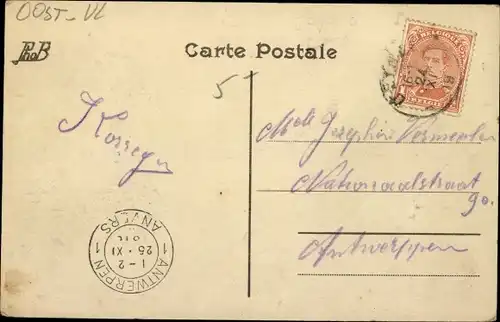 OOST-VL
PhoB
Carte Postale
BELGIQUE
BELGIË
5
Melle Josephine Vermeulen
Nationaalstraat
90.
Antwerpen
1 ANTWERPEN 1
1-2
25·XI
ANVERS